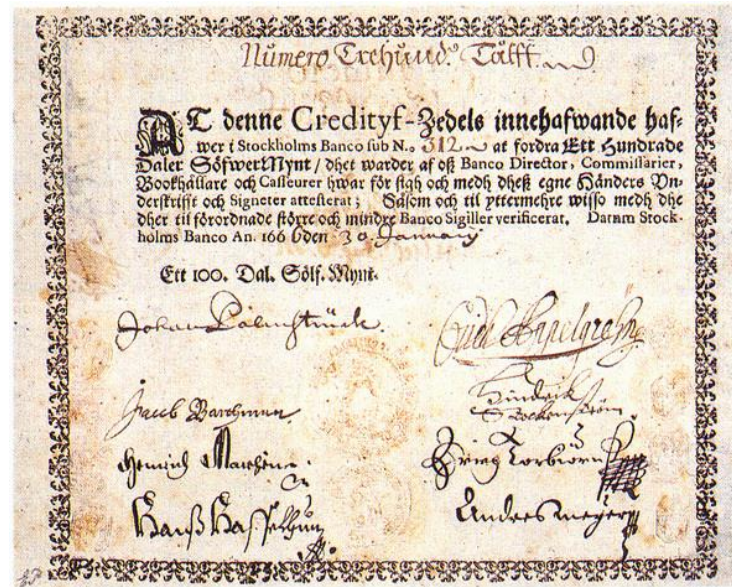 Numero Trehund: Tålfft
AT denne Credityf-Zedels innehafwande haf-
wer i Stockholms Banco sub N.o 312 at fordra Ett Hundrade
Daler SöfwerMynt / dhet warder af oß Banco Director, Commissarier,
Bookhållare och Casseurer hwar för sigh och medh dheß egne Händers Vn-
derskrifft och Signeter attesterat; Såsom och til yttermehre wisso medh dhe
dher til förordnade större och mindre Banco Sigiller verificerat, Datum Stock-
holms Banco An. 166 6 den 30. January
Ett 100. Dal. Sölf. Mynt.
Johan Palmstruch.
Jacob Barchman
Hindrick
Hans
Anders Meyer